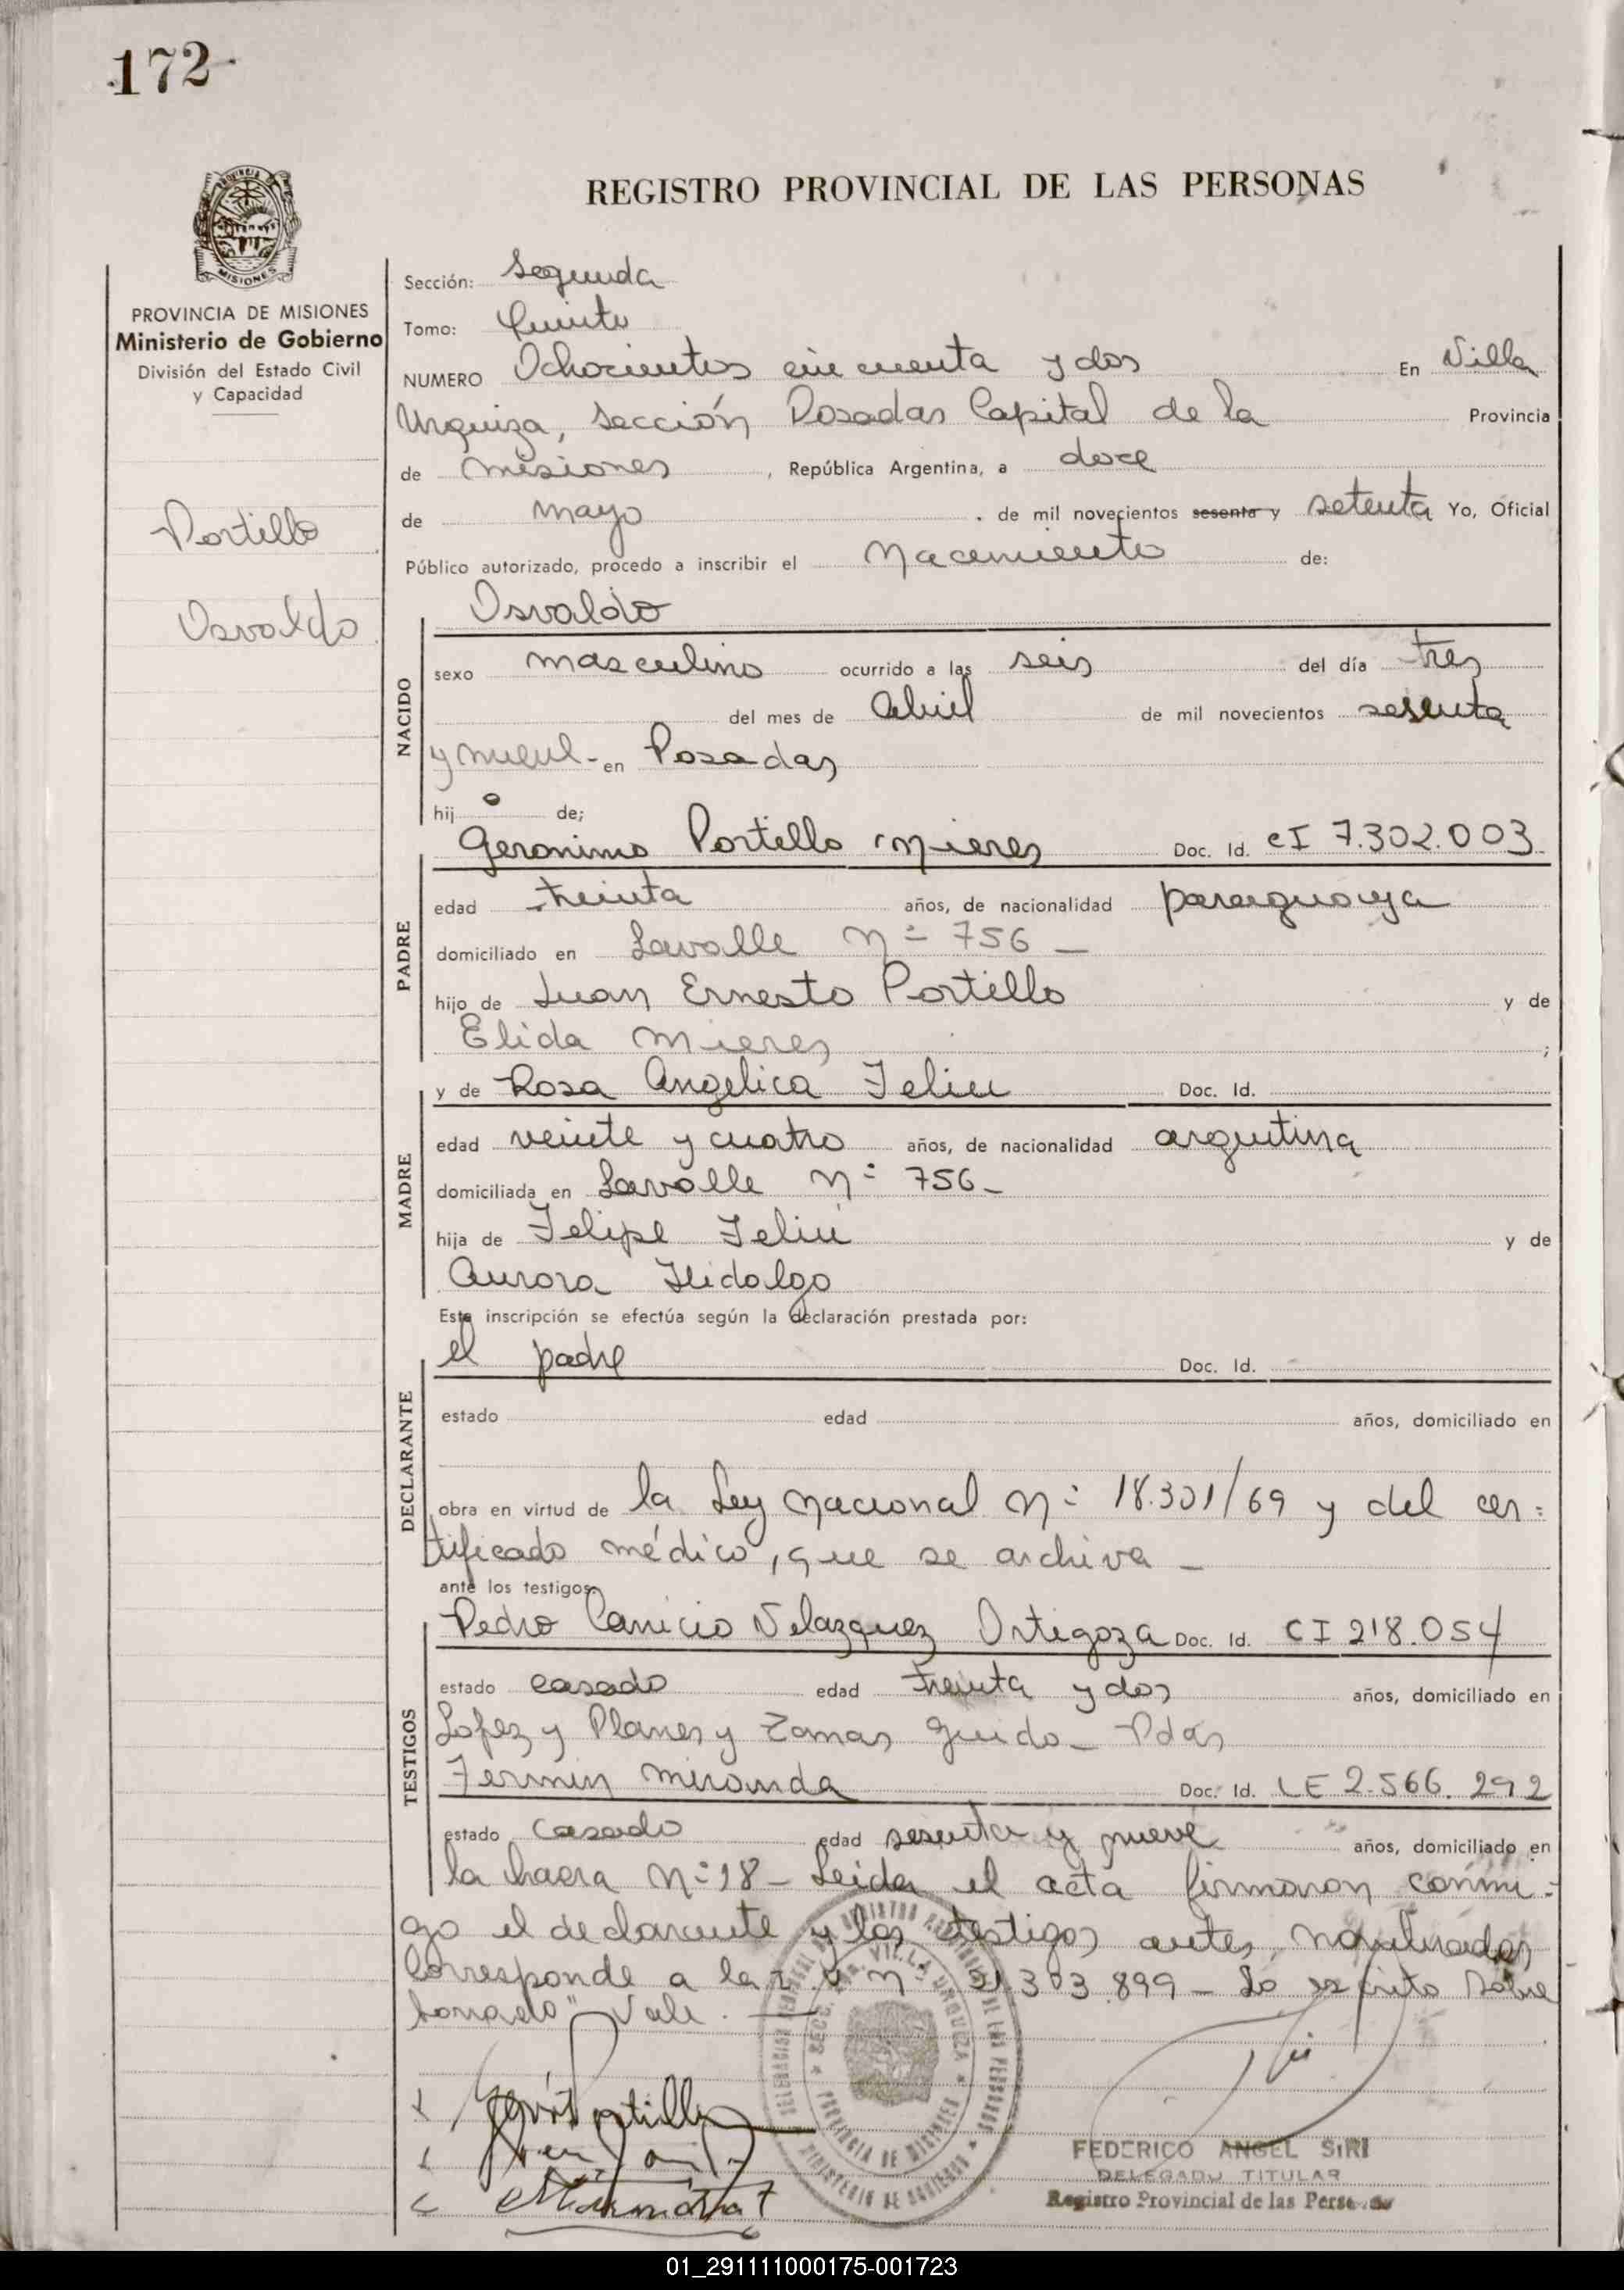 172
REGISTRO PROVINCIAL DE LAS PERSONAS
MISIONES
PROVINCIA DE MISIONES
Ministerio de Gobierno
División del Estado Civil
y Capacidad
Portillo
Osvaldo
Sección: Segunda
Tomo: Quinto
NUMERO Ochocientos cincuenta y dos En Villa
Urquiza, sección Posadas Capital de la Provincia
de Misiones, República Argentina, a doce
de mayo de mil novecientos sesenta y setenta Yo, Oficial
Público autorizado, procedo a inscribir el Nacimiento de:
Osvaldo
NACIDO
sexo masculino ocurrido a las seis del día tres
del mes de Abril de mil novecientos sesenta
y nueve - en Posadas
hijo de;
Geronimo Portillo Mieres Doc. Id. CI 7.302.003
PADRE
edad treinta años, de nacionalidad paraguaya
domiciliado en Lavalle Nº 756 -
hijo de Juan Ernesto Portillo y de
Elida Mieres ;
y de Rosa Angelica Feliu Doc. Id.
MADRE
edad veinte y cuatro años, de nacionalidad argentina
domiciliada en Lavalle Nº 756 -
hija de Felipe Feliú y de
Aurora Hidalgo
Esta inscripción se efectúa según la declaración prestada por:
el padre Doc. Id.
DECLARANTE
estado edad años, domiciliado en
obra en virtud de la Ley Nacional Nº 18.301/69 y del cer=
tificado médico, que se archiva -
ante los testigos:
Pedro Canicio Velazquez Ortigoza Doc. Id. CI 218.054
TESTIGOS
estado casado edad treinta y dos años, domiciliado en
Lopez y Planes y Tomas Guido - Pdas
Fermin Miranda Doc. Id. LE 2.566.292
estado casado edad sesenta y nueve años, domiciliado en
la chacra Nº 18 - Leida el acta firmaron conmi=
go el declarante y los testigos antes nombrados
Corresponde a la 303.899 - Lo escrito sobre
borrado" Vale.
SECC. VILLA URQUIZA
PROVINCIA DE MISIONES
MINISTERIO DE GOBIERNO
FEDERICO ANGEL SIRI
DELEGADO TITULAR
Registro Provincial de las Personas
01_291111000175-001723